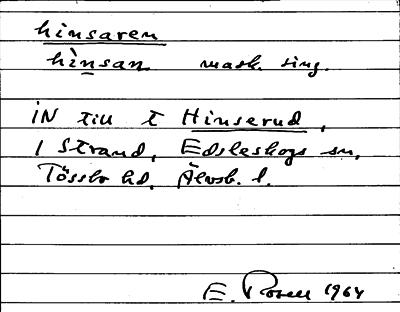 hinsaren
hìnsan mask. sing.
IN till t Hinserud,
i Strand, Edsleskogs sn,
Tössbo hd. Älvsb. l.
E. Rosell 1964